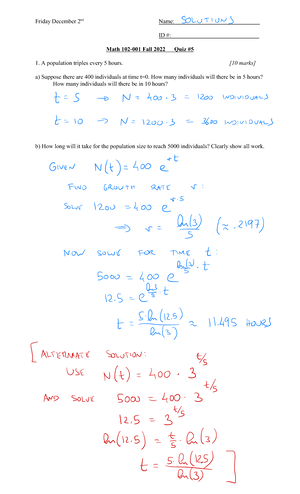 Friday December 2nd Name: SOLUTIONS
ID #:
Math 102-001 Fall 2022 Quiz #5
1. A population triples every 5 hours. [10 marks]
a) Suppose there are 400 individuals at time t=0. How many individuals will there be in 5 hours?
How many individuals will there be in 10 hours?
t = 5 → N = 400 · 3 = 1200 INDIVIDUALS
t = 10 → N = 1200 · 3 = 3600 INDIVIDUALS
b) How long will it take for the population size to reach 5000 individuals? Clearly show all work.
GIVEN N(t) = 400 e^{r·t}
FIND GROWTH RATE r:
SOLVE 1200 = 400 e^{r·5}
⇒ r = ln(3)/5 (≈ .2197)
NOW SOLVE FOR TIME t:
5000 = 400 e^{ln(3)/5 · t}
12.5 = e^{ln3/5 t}
t = 5·ln(12.5)/ln(3) ≈ 11.495 HOURS
[ALTERNATE SOLUTION:
USE N(t) = 400 · 3^{t/5}
AND SOLVE 5000 = 400 · 3^{t/5}
12.5 = 3^{t/5}
ln(12.5) = t/5 · ln(3)
t = 5·ln(12.5)/ln(3)]